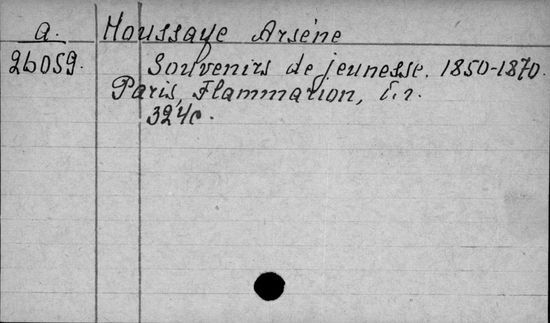 a. Houssaye Arsène
26059. Souvenirs de jeunesse. 1850-1870.
Paris, Flammarion,
324c.